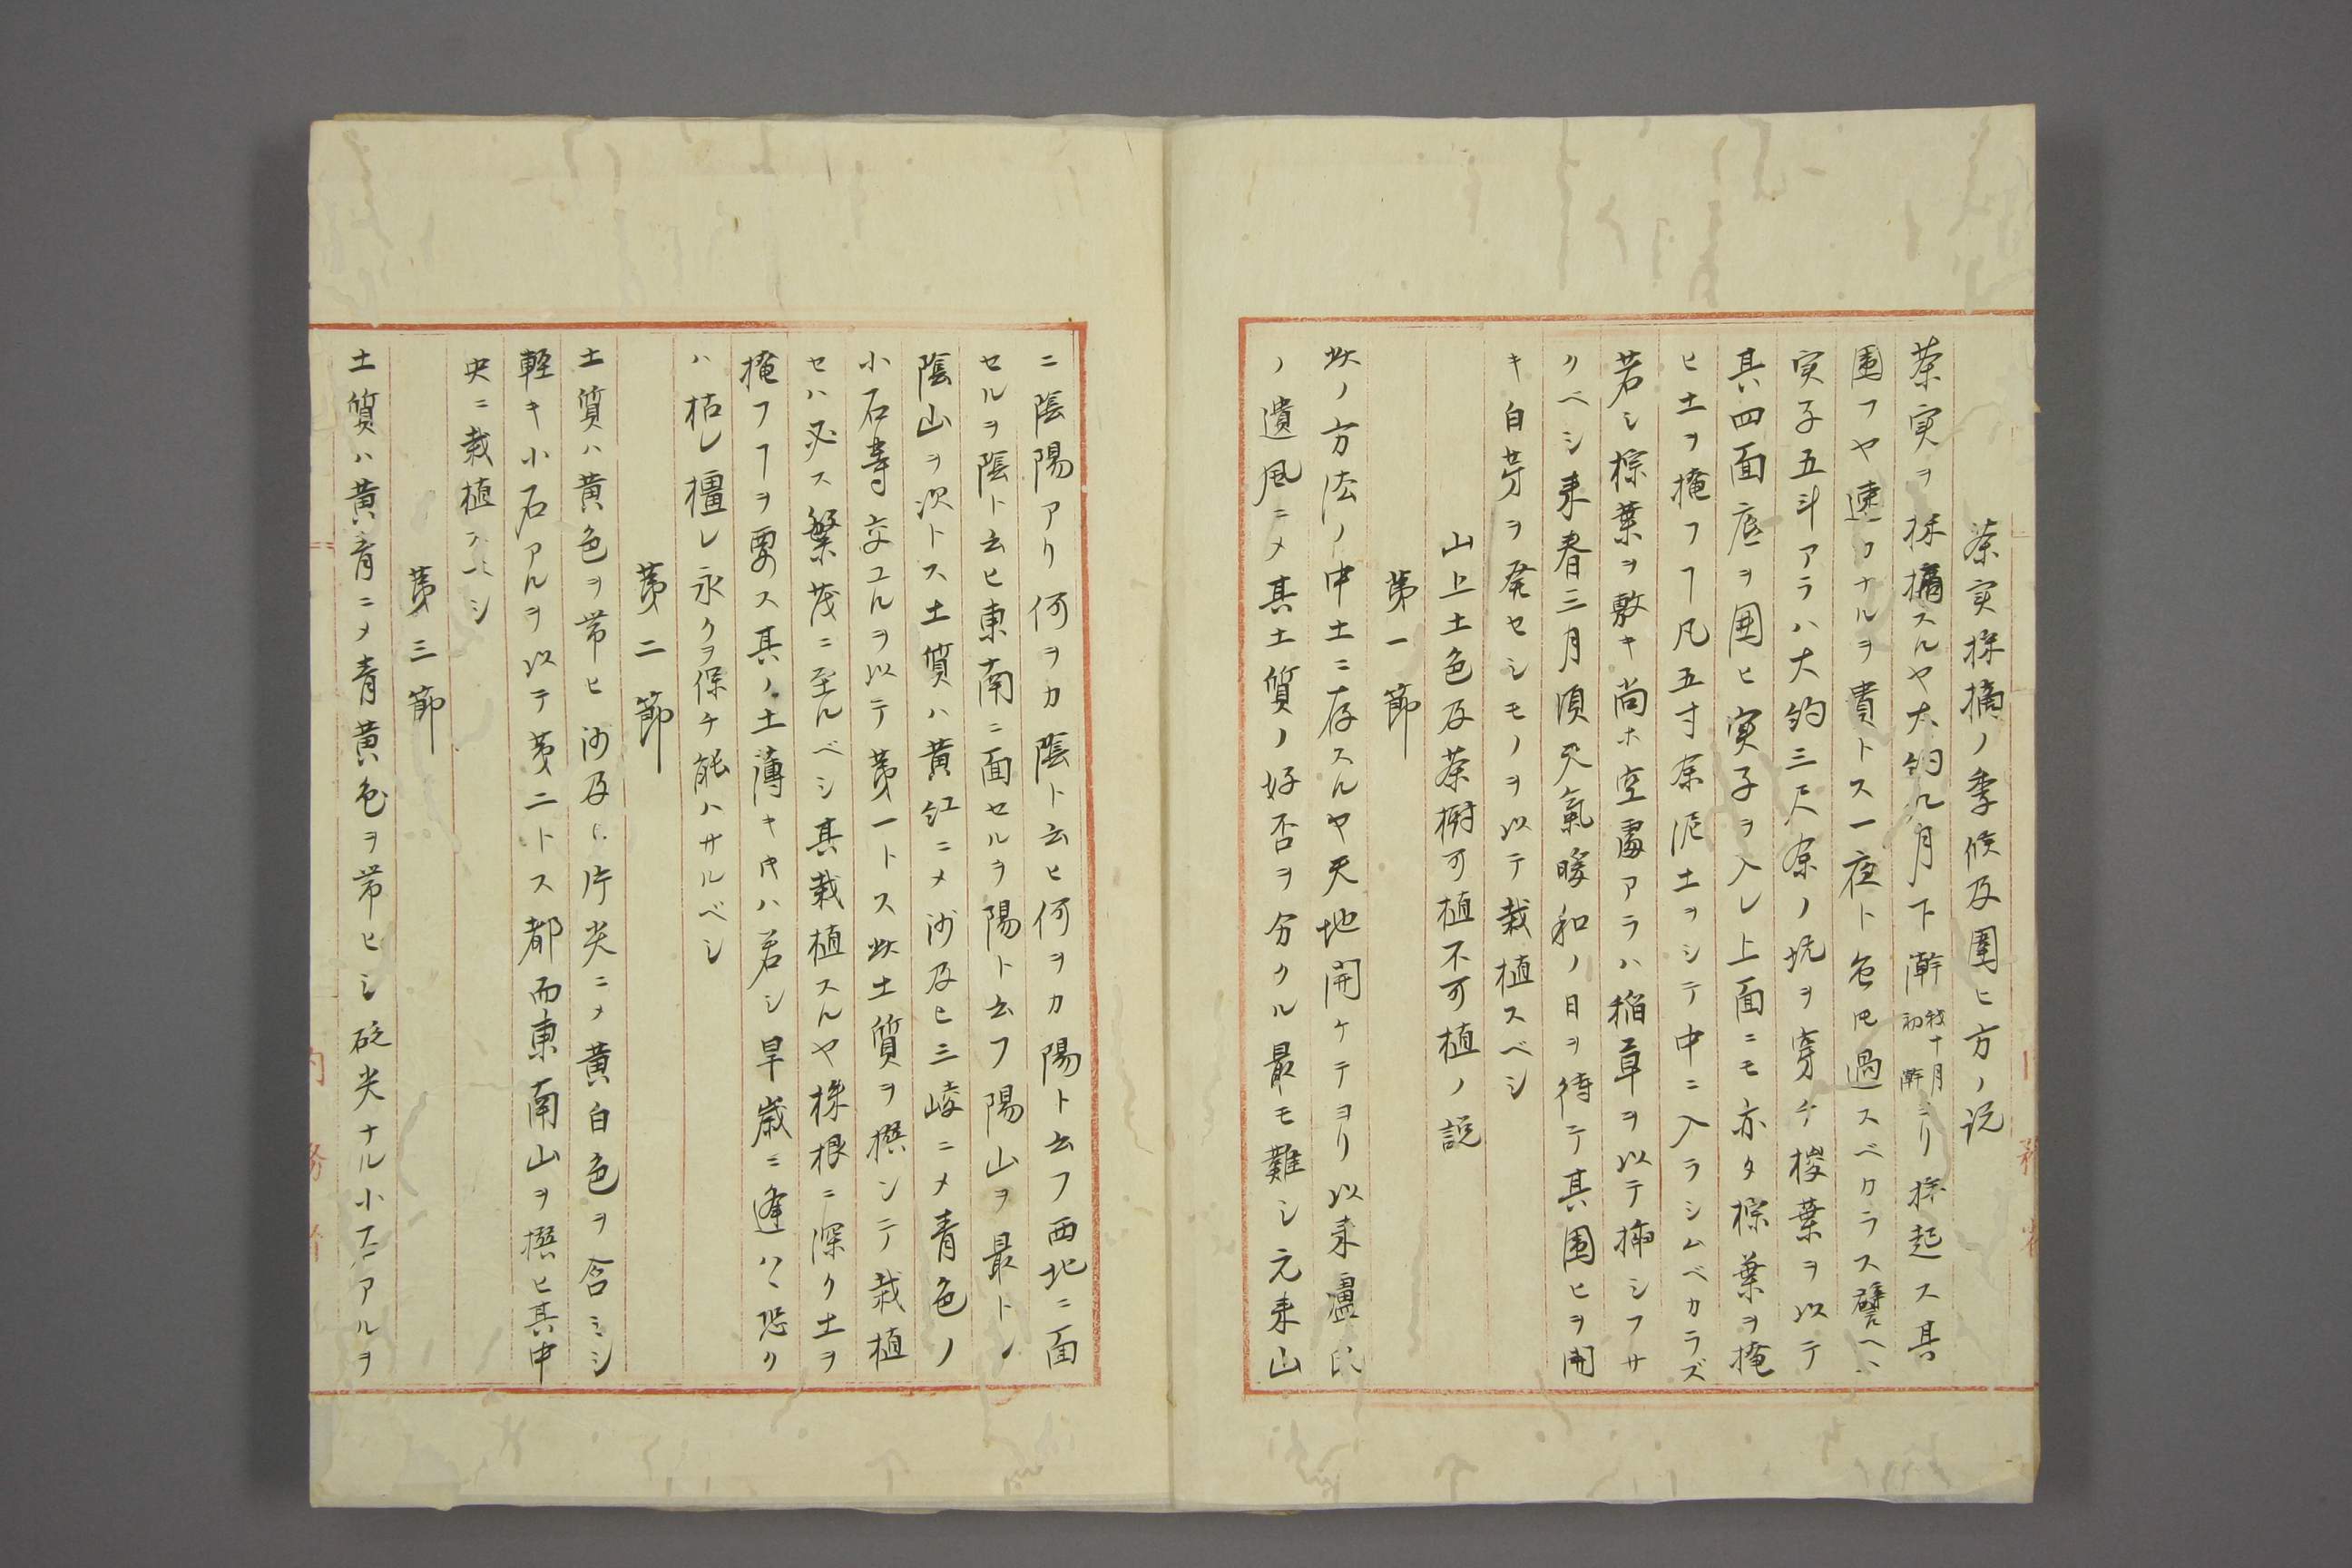 茶実採摘ノ季候及圍ヒ方ノ説
茶実ヲ採摘スルヤ大約九月下澣我十月初澣ニリ採起ス其
圍フヤ速カナルヲ貴トス一夜ト雖𪜈過スベカラス譬ヘハ
実子五斗アラハ大約三尺余ノ坑ヲ穿チ椶葉ヲ以テ
其四面底ヲ囲ヒ実子ヲ入レ上面ニモ亦タ棕葉ヲ掩
ヒ土ヲ掩フヿ凡五寸余泥土ヲシテ中ニ入ラシムベカラズ
若シ棕葉ヲ敷キ尚ホ空處アラハ稲草ヲ以テ挿シフサ
クベシ来春三月頃天氣暖和ノ日ヲ待テ其圍ヒヲ開
キ白芽ヲ発セシモノヲ以テ栽植スベシ
山上土色及茶樹可植不可植ノ説
第一節
此ノ方法ノ中土ニ存スルヤ天地開ケテヨリ以来盧氏
ノ遺風ニメ其土質ノ好否ヲ分クル最モ難シ元来山
ニ陰陽アリ何ヲカ陰ト云ヒ何ヲカ陽ト云フ西北ニ面
セルヲ陰ト云ヒ東南ニ面セルヲ陽ト云フ陽山ヲ最トシ
陰山ヲ次トス土質ハ黄紅ニメ沙及ヒ三崚ニメ青色ノ
小石等交ユルヲ以テ第一トス此土質ヲ撰ンテ栽植
セハ必ス繁茂ニ至ルベシ其栽植スルヤ株根ニ深ク土ヲ
掩フヿヲ要ス其ノ土薄キキハ若シ旱歳ニ逢ハヽ恐ク
ハ枯レ橿レ永クヲ保チ能ハサルベシ
第二節
土質ハ黄色ヲ帯ヒ沙及ヒ片尖ニメ黄白色ヲ含ミシ
軽キ小石アルヲ以テ第二トス都而東南山ヲ撰ヒ其中
央ニ栽植スヘシ
第三節
土質ハ黄青ニメ青黄色ヲ帯ヒシ砭尖ナル小石アルヲ